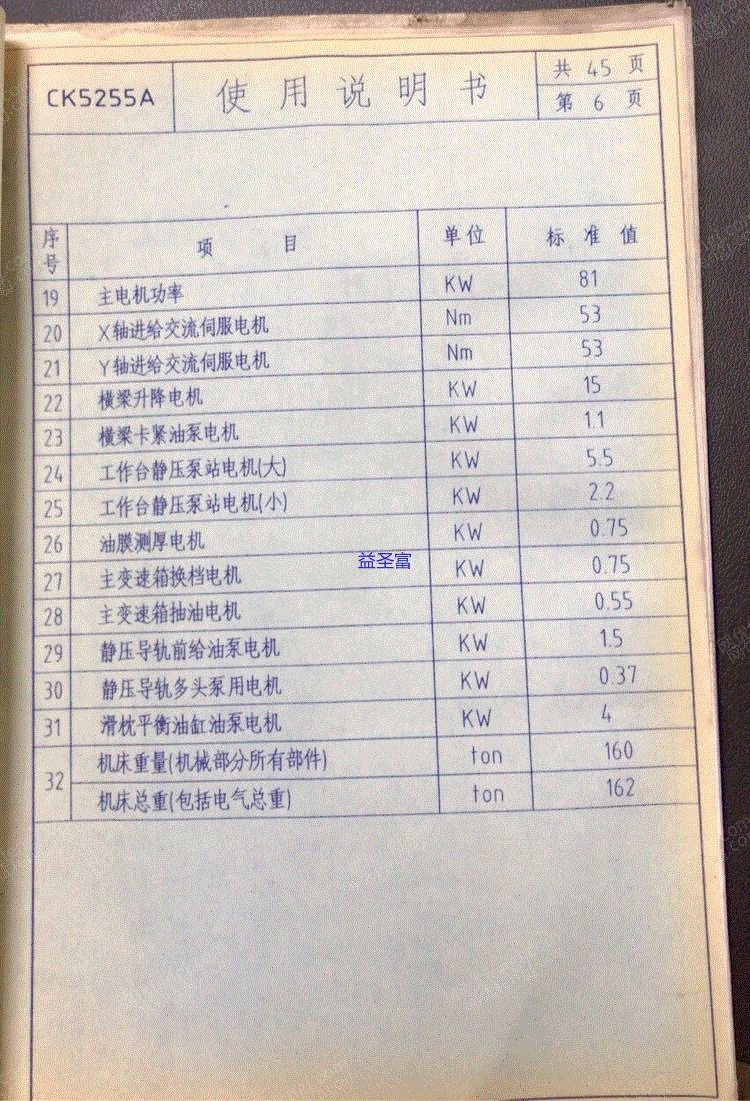 CK5255A 使用说明书 共 45 页
第 6 页
序号 项目 单位 标准值
19 主电机功率 KW 81
20 X轴进给交流伺服电机 Nm 53
21 Y轴进给交流伺服电机 Nm 53
22 横梁升降电机 KW 15
23 横梁卡紧油泵电机 KW 1.1
24 工作台静压泵站电机(大) KW 5.5
25 工作台静压泵站电机(小) KW 2.2
26 油膜测厚电机 KW 0.75
益圣富
27 主变速箱换档电机 KW 0.75
28 主变速箱抽油电机 KW 0.55
29 静压导轨前给油泵电机 KW 1.5
30 静压导轨多头泵用电机 KW 0.37
31 滑枕平衡油缸油泵电机 KW 4
32 机床重量(机械部分所有部件) ton 160
机床总重(包括电气总重) ton 162